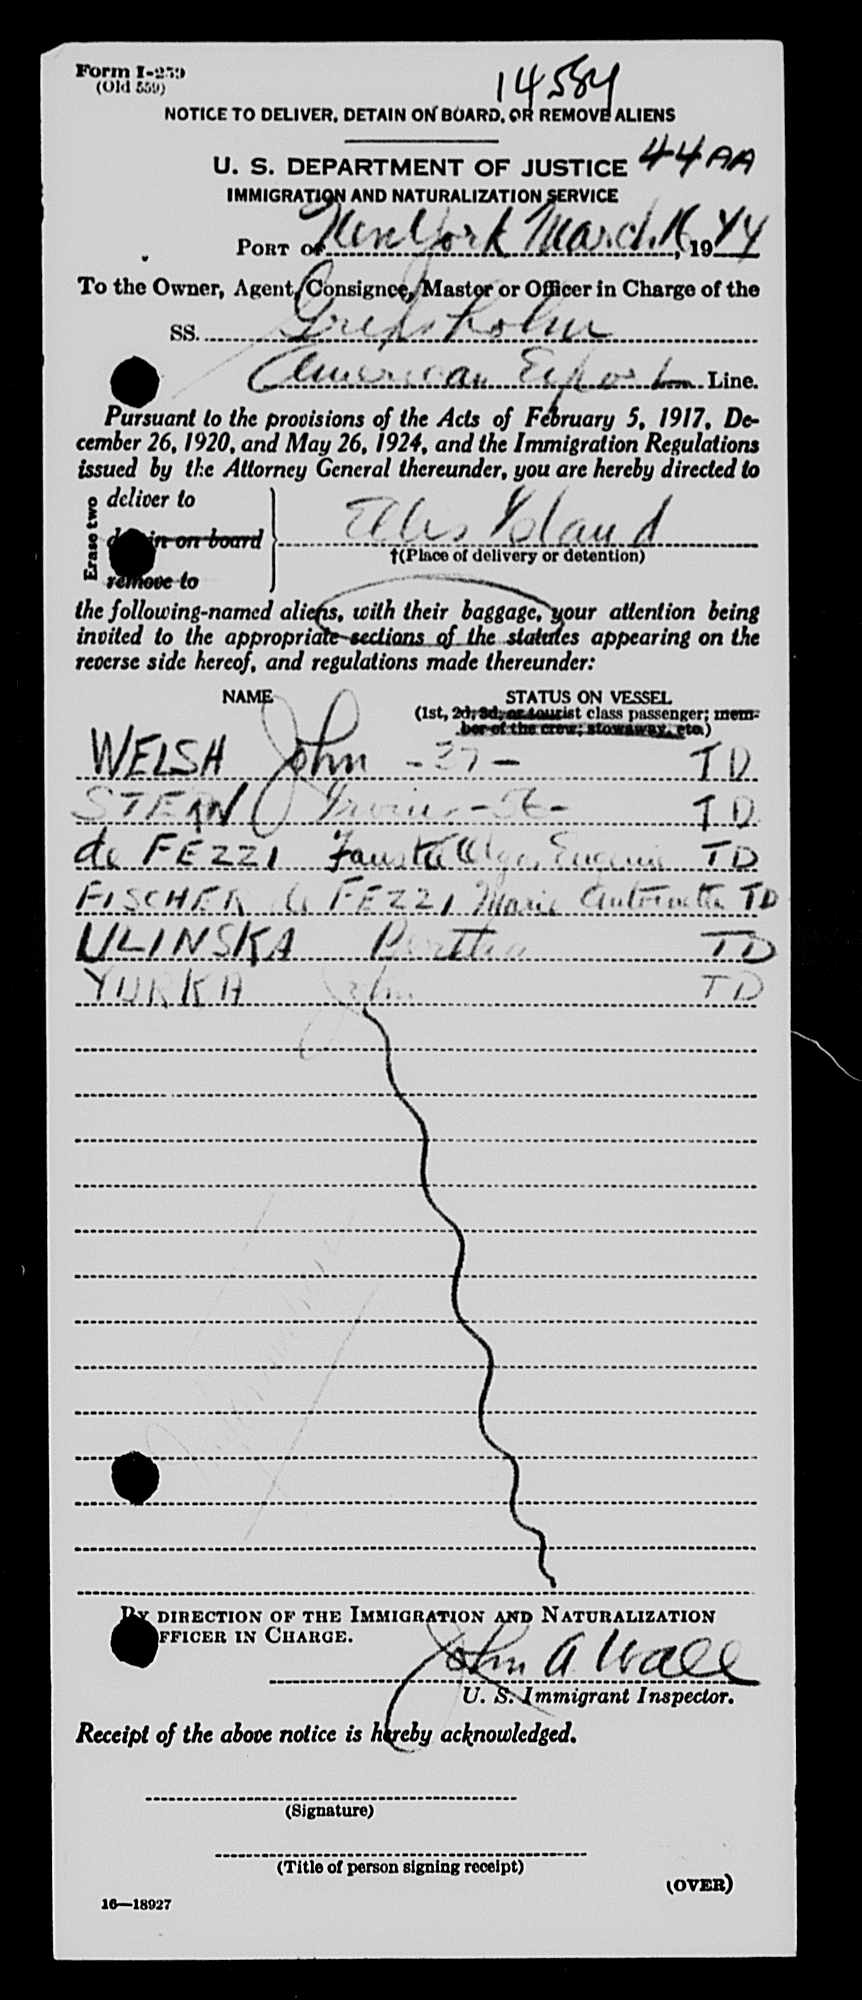 Form I-259
(Old 559)
14584
NOTICE TO DELIVER, DETAIN ON BOARD, OR REMOVE ALIENS
44AA
U. S. DEPARTMENT OF JUSTICE
IMMIGRATION AND NATURALIZATION SERVICE
PORT of New York March 16, 1944
To the Owner, Agent, Consignee, Master or Officer in Charge of the
SS. Gripsholm
American Export Line.
Pursuant to the provisions of the Acts of February 5, 1917, De-
cember 26, 1920, and May 26, 1924, and the Immigration Regulations
issued by the Attorney General thereunder, you are hereby directed to
Erase two
deliver to
detain on board
remove to
Ellis Island
†(Place of delivery or detention)
the following-named aliens, with their baggage, your attention being
invited to the appropriate sections of the statutes appearing on the
reverse side hereof, and regulations made thereunder:
NAME STATUS ON VESSEL
(1st, 2d, 3d, or tourist class passenger; mem-
ber of the crew; stowaway, etc.)
WELSH John -37- TD
STERN TD
de FEZZI Fausta Olga Eugenia TD
FISCHER de FEZZI Marie Antoinetta TD
ULINSKA Bertha TD
YURKA John TD
BY DIRECTION OF THE IMMIGRATION AND NATURALIZATION
OFFICER IN CHARGE.
John A Wall
U. S. Immigrant Inspector.
Receipt of the above notice is hereby acknowledged.
(Signature)
(Title of person signing receipt)
(OVER)
16—18927